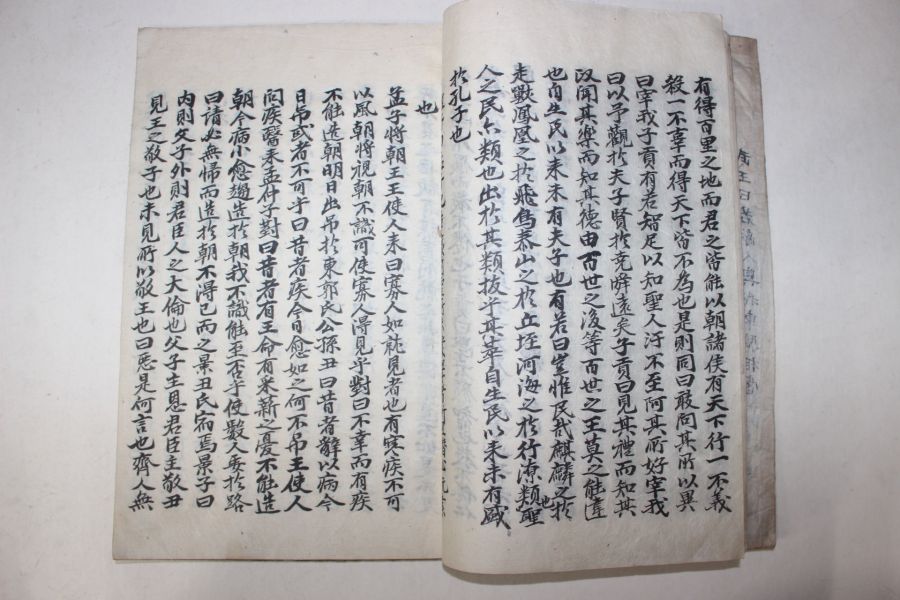 有得百里之地而君之皆能以朝諸侯有天下行一不義
殺一不辜而得天下皆不為也是則同曰敢問其所以異
曰宰我子貢有若智足以知聖人汙不至阿其所好宰我
曰以予觀於夫子賢於堯舜遠矣子貢曰見其禮而知其
政聞其樂而知其德由百世之後等百世之王莫之能違
也自生民以来未有夫子也有若曰豈惟民哉麒麟之於
走獸鳳凰之於飛鳥泰山之於丘垤河海之於行潦類也聖
人之民亦類也出於其類拔乎其萃自生民以来未有盛
於孔子也
也
孟子将朝王王使人来曰寡人如就見者也有寒疾不可
以風朝将視朝不識可使寡人得見乎對曰不幸而有疾
不能造朝明日出吊於東郭氏公孫丑曰昔者辭以病今
日吊或者不可乎曰昔者疾今日愈如之何不吊王使人
问疾醫来孟仲子對曰昔者有王命有采薪之憂不能造
朝今病小愈趨造於朝我不識能至否乎使數人要於路
曰請必無歸而造於朝不得已而之景丑氏宿焉景子曰
内則父子外則君臣人之大倫也父子主恩君臣主敬丑
見王之敬子也未見所以敬王也曰惡是何言也齊人無